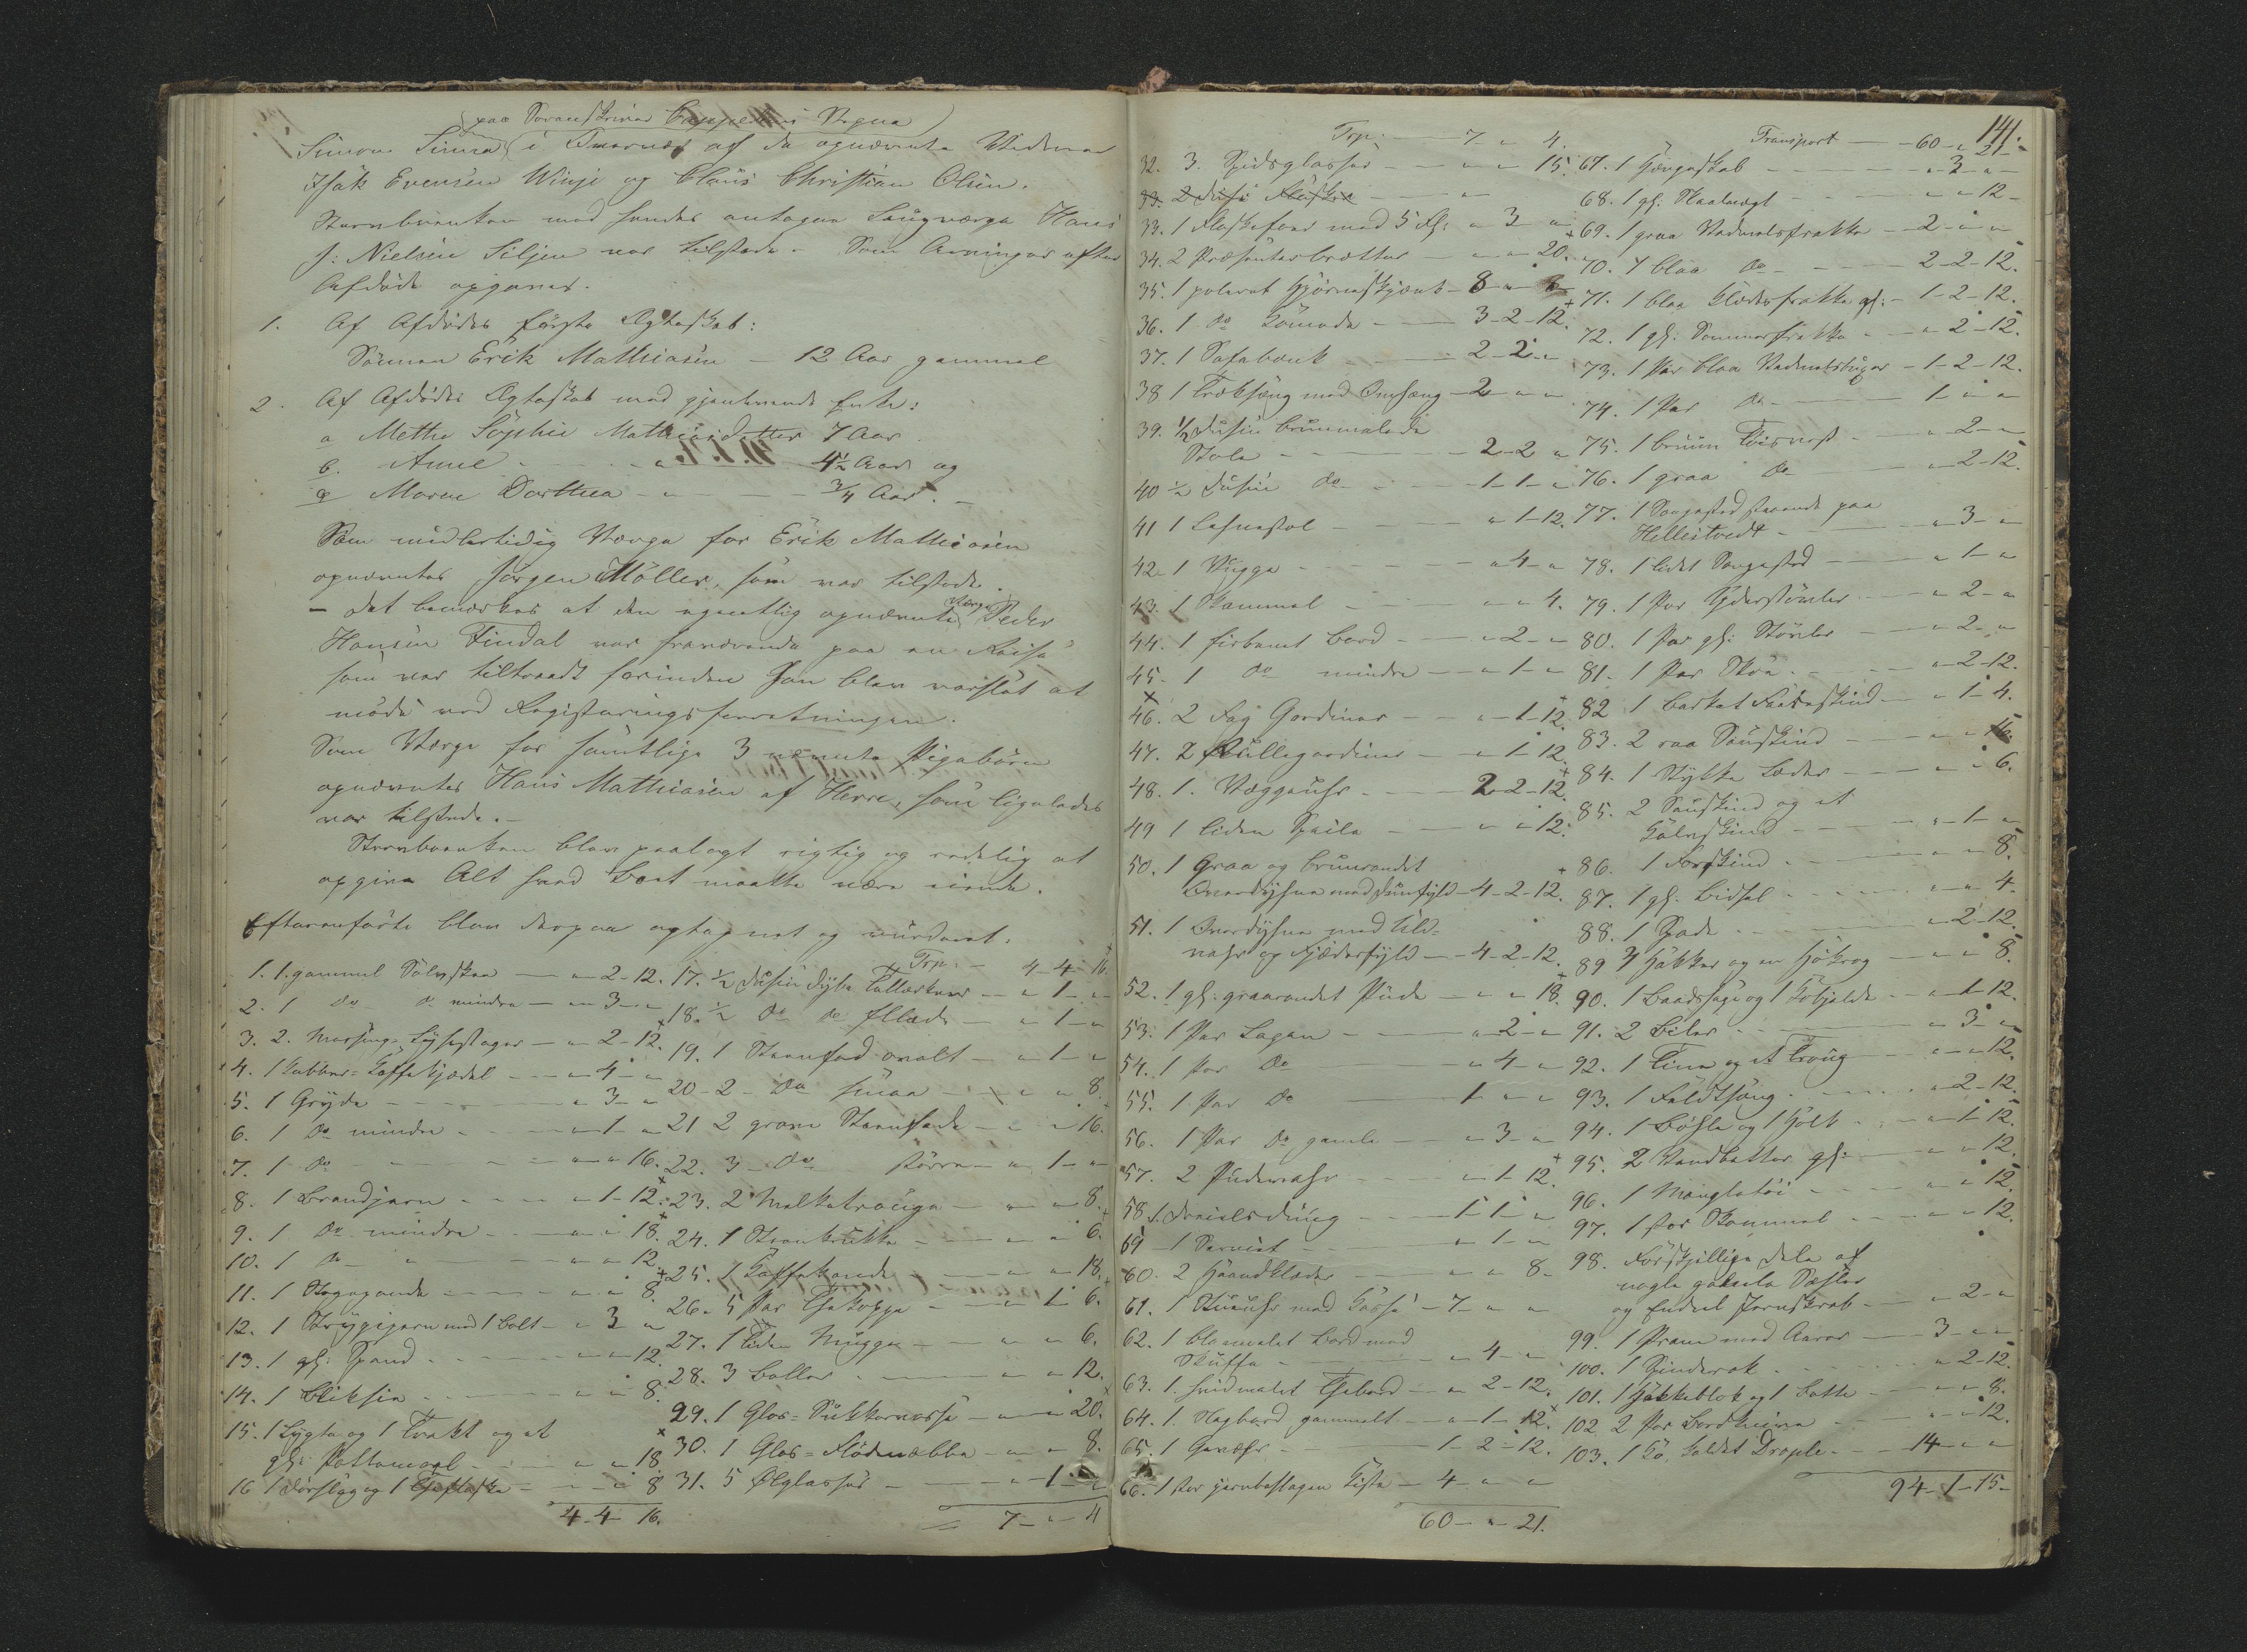 paa Sorenskriver Cappelens Vegne
Simon Simon i Overvær af de opnævnte Vidner
Isak Evensen Winje og Claus Christian Olsen.
Stervboenken med hendes antagne Laugværge Hans
J: Nielsen Siljen var tilstede. Som Arvinger efter
Afdøde opgaves.
1. Af Afdødes første Ægteskab:
Sønnen Erik Mathiasen – 12 Aar gammel
2. Af Afdødes Ægteskab med gjenlevende Enke:
a Methe Sophie Mathiasdatter 7 Aar.
b. Anne – „ – 4½ Aar og
c Maren Dorthea – „ – ¾ Aar. –
Som midlertidig Værge for Erik Mathiasen
opnævntes Jørgen Møller, som var tilstede.
– Det bemærkes at den egentlig opnævnte Værge Peder
Hansen Findal var fraværende paa en Reise
som var tiltraadt forinden Han blev varslet at
møde ved Registeringsforretningen.
Som Værge for samtlige 3 nævnte Pigebørn
opnævntes Hans Mathiasen af Herre, som ligeledes
var tilstede. –
Stervboenken blev paalagt rigtig og redelig at
opgive Alt hvad Boet maatte være eiende.
Efteranførte blev derpaa optegnet og vurderet.
1. 1. gammel Sølvskee – „ – 2 – 12.
2. 1 do do mindre – „ – 3 – „
3. 2. Messing-Lysestager – „ – 2 – 12.
4. 1 Kobber-Kaffekjædel – „ – 4 – „
5. 1 Gryde – „ – 3 – „
6. 1 do mindre – „ – 1 – „
7. 1 do – „ – „ – 16.
8. 1 Brandjern – „ – 1 – 12.
9. 1 do mindre – „ – „ – 18.
10. 1 do „ – „ – „ – 12.
11. 1 Stegepande – „ – „ – 8.
12. 1 Strygejern med 1 Bolt – „ – 3 – „
13. 1 gl: Spand – „ – „ – 12.
14. 1 – „ – „ – 8.
15. 1 Lygte og 1 Tragt og et
gl: – „ – „ – 18
16 1 Dørslag og 1 – „ – „ – 8
4 – 4 – 16.
Trp: – 4 – 4 – 16.
17. ½ Dusin dybe Tallerkener – „ – 1 – „
18. ½ do do fllade – „ – 1 – „
19. 1 Steenfad ovalt – „ – 1 – „
20 – 2 – do smaa – „ – „ – 8.
21 2 grove Steenfade – „ – „ – 16.
22. 3 – do større – „ – 1 – „
23. 2 Melketrouge – „ – „ – 8.
24. 1 Steenkrukke – „ – „ – 6.
25. 1 Kaffekande – „ – „ – 18.
26. 5 Par Thekopper – „ – 1 – 6.
27. 1 liden Mugge – „ – „ – 6.
28. 3 Boller – „ – „ – 12.
29. 1 Glas-Sukkervasse – „ – „ – 20.
30. 1 Glas-Flødenæbbe – „ – „ – 8.
31. 5 Ølglasser – „ – 1 – „
7 – „ – 4
141.
Trp: – 7 „ 4.
32. 3. Spidsglasser – „ – „ – 15.
33. 2 Dusin Flasker – „
33. 1 Flaskefoer med 5 Fl: „ 3 „
34. 2 Præsenterbrætter – „ – „ – 20.
35. 1 poleret Hjørneskjænk – 8 – „ –
36. 1 do Komode – 3 – 2 – 12.
37. 1 Sofabænk – 2 – 2 – „
38 1 Træksæng med Omhæng – 2 „ „
39. ½ Dusin brunmalede
Stole – 2 – 2 „
40 ½ Dusin do – 1 – 1 – „
41 1 Lænestol – „ – 1 – 12.
42. 1 Vugge – „ 4 – „
43. 1 Skammel – „ – „ – 4.
44. 1 firkantet Bord – „ – 2 – „
45. 1 do mindre – „ – 1 – „
46. 2 Fag Gardiner – „ – 1 – 12.
47. 2 Rullegardiner – „ – 1 – 12.
48. 1. Vægguhr – 2 – 2 – 12.
49 1 liden Speile – „ – „ – 12.
50. 1 Graa og brunrandet
Overdyhne med Duunfyld – 4 – 2 – 12.
51. 1 Overdyhne med Uld-
vaahr og Fjæderfyld – 4 – 2 – 12.
52. 1 gl: graarandet Pude – „ – „ – 18.
53. 1 Par Lagen – „ – 2 – „
54. 1 Par do – „ – 4 – „
55. 1 Par do – 1 – „ – „
56. 1 Par do gamle – „ – 3 – „
57. 2 Pudevahr – „ – 1 – 12.
58. 1. Dreielsdug – 1 – 1 – „
59 – 1 Serviet – „ – 1 – „
60. 2 Haandklæder – „ – „ – 8.
61. 1 Stueuhr med Kasse – 7 – „ – „
62. 1 blaamalet Bord med
Skuffe – „ – 4 – „
63. 1. hvidmalet Thebord – „ – 2 – 12.
64. 1. Slagbord gammelt – „ – 1 – 12.
65. 1 Gevæhr – 1 – 2 – 12.
66. 1 stor jernbeslagen Kiste – 4 – „ – „
60 – „ – 21.
Transport – 60 – „ – 21 –
67. 1 Hængeskab – „ – 3 – „
68. 1 gl: Skaalvægt – „ – „ – 12 –
69. 1 graa Vadmelsfrakke – 2 – „ – „
70. 1 blaa do – 2 – 2 – 12.
71. 1 blaa Klædesfrakke gl: – 1 – 2 – 12.
72. 1 gl: Sommerfrakke – „ – 2 – 12.
73. 1 Par blaa Vadmelsbuxer – 1 – 2 – 12.
74. 1 Par do – 1 – „ – „
75. 1 bruun Tøisvest – „ – 2 – „
76. 1 graa do – „ – 2 – 12.
77. 1 Sengested staaende paa
Hellestvedt – „ – 3 – „
78. 1 lidet Sengested – „ – 1 – „
79. 1 Par Yderstøvler – „ – 2 – „
80. 1 Par gl: Støvler – „ – 2 – „
81. 1 Par Skoe – „ – 2 – 12.
82 1 barket Faareskind – „ – 1 – 4.
83. 2 raa Saueskind – „ – „ – 16.
84. 1 Stykke Læder – „ – „ – 6.
85. 2 Saueskind og et
Kalveskind – „ – 1 – „
86. 1 Forskind – „ – „ – 8.
87. 1 gl: Bidsel – „ – „ – 4.
88. 1 Spade – „ – 2 – 12.
89 3 Hakker og en – „ – „ – 8.
90. 1 Baadshage og 1 – „ – 1 – 12.
91. 2 Biler – „ – 3 – „
92. 1 Tine og et Troug – „ – „ – 12.
93. 1 Feldtsæng – „ – 2 – 12.
94. 1 Bøhle og 1 Holk – „ – 1 – 12.
95. 2 Vandbøtter gl: – „ – „ – 12.
96. 1 Mangletøi – „ – „ – 12.
97. 1 stor Skammel – „ – „ – 12.
98. Forskjellige Dele af
nogle gamle Sæler
og endeel Jernskrab – „ – 2 – „
99. 1 Pram med Aarer – 3 – „ – „
100. 1 Spinderok – „ – 2 – 12.
101. 1 Hakkeblok og 1 Bøtte – „ – „ – 8.
102 2 Par Bordknive – „ – „ – 12.
103. 1 Ko, kaldet Drople – 14 – „ – „
94 – 1 – 15 –